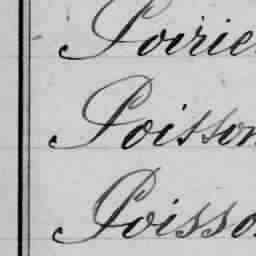 Poirie
Poisson
Poisso